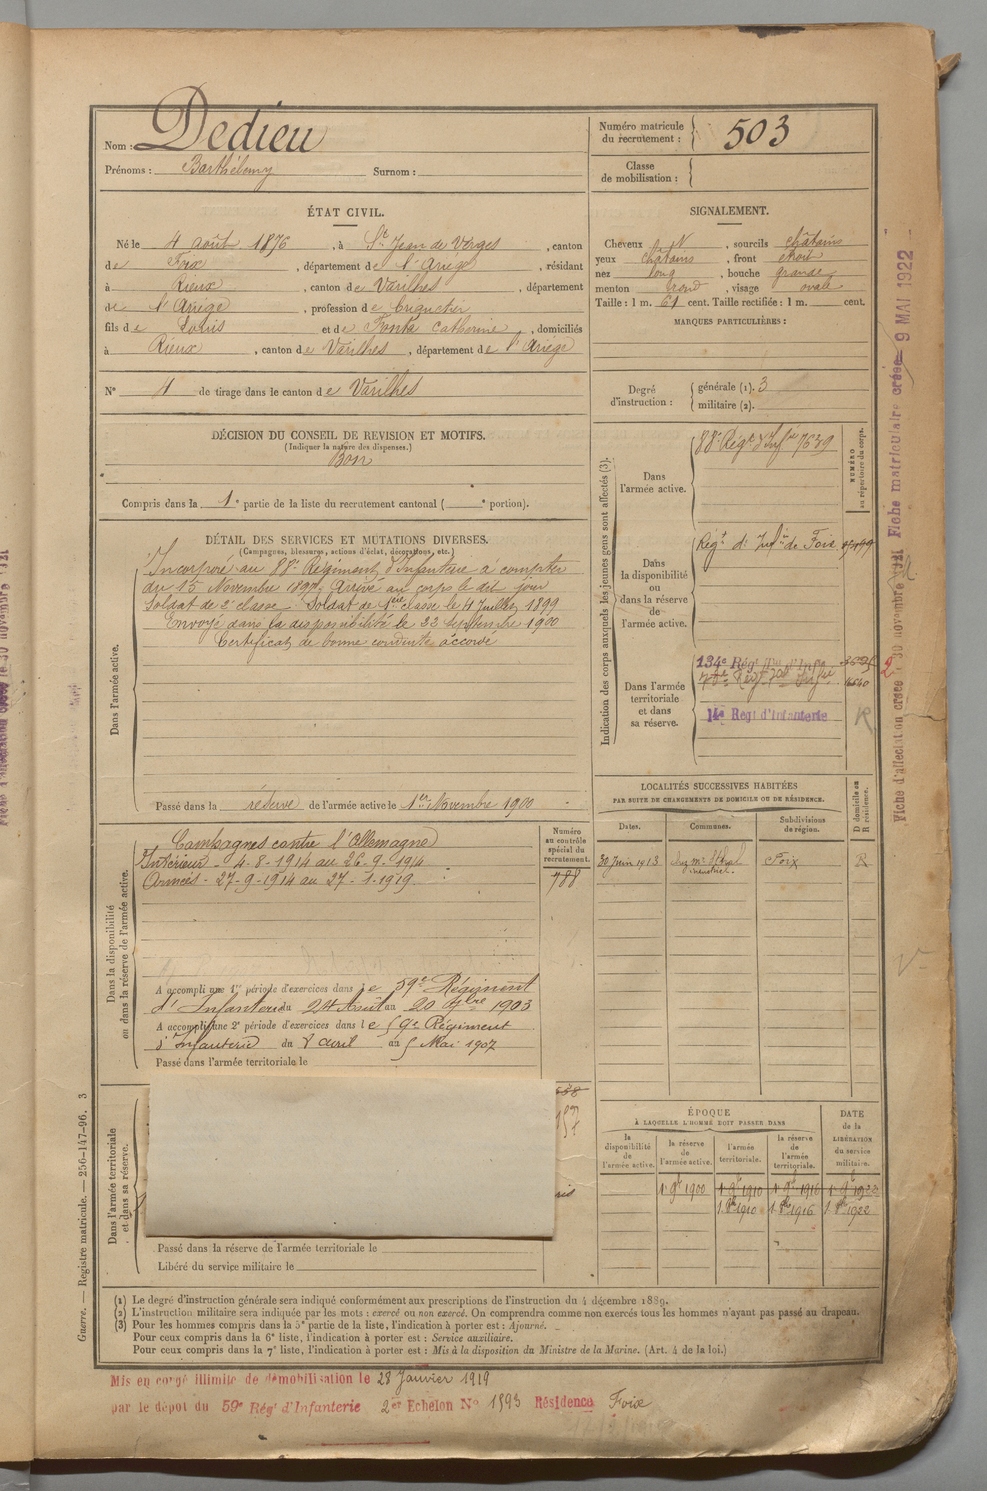 Nom : Dedieu
Prénoms : Barthélemy Surnom :
Numéro matricule du recrutement : 503
Classe de mobilisation :
ÉTAT CIVIL.
Né le 4 août 1876, à St Jean de Verges, canton
de Foix, département de l'Ariège, résidant
à Rieux, canton de Varilhes, département
de l'Ariège, profession de briquetier
fils de Louis et de Fonta Catherine, domiciliés
à Rieux, canton de Varilhes, département de l'Ariège
N° 4 de tirage dans le canton de Varilhes
SIGNALEMENT.
Cheveux N, sourcils châtains
yeux châtains, front étroit
nez long, bouche grande
menton rond, visage ovale
Taille : 1 m. 61 cent. Taille rectifiée : 1 m. cent.
MARQUES PARTICULIÈRES :
Degré d'instruction : générale (1). 3
militaire (2).
DÉCISION DU CONSEIL DE REVISION ET MOTIFS.
(Indiquer la nature des dispenses.)
Bon
Compris dans la 1e partie de la liste du recrutement cantonal ( e portion).
DÉTAIL DES SERVICES ET MUTATIONS DIVERSES.
(Campagnes, blessures, actions d'éclat, décorations, etc.)
Dans l'armée active.
Incorporé au 88e Régiment d'Infanterie à compter
du 15 Novembre 1897, Arrivé au corps le dit jour
Soldat de 2e classe. Soldat de 1ère classe le 4 Juillet 1899
Envoyé dans la disponibilité le 22 septembre 1900
Certificat de bonne conduite accordé
Passé dans la réserve de l'armée active le 1er Novembre 1900
Indication des corps auxquels les jeunes gens sont affectés (3).
NUMÉRO au répertoire du corps.
Dans l'armée active.
88e Régt d'Infie 7639
Dans la disponibilité ou dans la réserve de l'armée active.
Régt d'Infie de Foix
Dans l'armée territoriale et dans sa réserve.
134e Régt Ter d'Infie
14e Regt d'Infanterie
R
2
LOCALITÉS SUCCESSIVES HABITÉES
PAR SUITE DE CHANGEMENTS DE DOMICILE OU DE RÉSIDENCE.
Dates. Communes. Subdivisions de région. D domicile ou R résidence.
30 Juin 1913 Foix R
Dans la disponibilité ou dans la réserve de l'armée active.
Numéro au contrôle spécial du recrutement.
788
Campagnes contre l'Allemagne
Intérieur - 4-8-1914 au 26-9-1914
Armées - 27-9-1914 au 27-1-1919
A accompli une 1re période d'exercices dans le 59e Régiment
d'Infanterie du 24 Août au 20 7bre 1903
A accompli une 2e période d'exercices dans le 59e Régiment
d'Infanterie du 8 avril au 5 Mai 1907
Passé dans l'armée territoriale le
Dans l'armée territoriale et dans sa réserve.
Passé dans la réserve de l'armée territoriale le
Libéré du service militaire le
ÉPOQUE
À LAQUELLE L'HOMME DOIT PASSER DANS
la disponibilité de l'armée active. la réserve de l'armée active. l'armée territoriale. la réserve de l'armée territoriale. DATE de la LIBÉRATION du service militaire.
1er 9bre 1900 1er 9bre 1910 1er 9bre 1916 1er 9bre 1922
1910 1916 1922
(1) Le degré d'instruction générale sera indiqué conformément aux prescriptions de l'instruction du 4 décembre 1889.
(2) L'instruction militaire sera indiquée par les mots : exercé ou non exercé. On comprendra comme non exercés tous les hommes n'ayant pas passé au drapeau.
(3) Pour les hommes compris dans la 5e partie de la liste, l'indication à porter est : Ajourné.
Pour ceux compris dans la 6e liste, l'indication à porter est : Service auxiliaire.
Pour ceux compris dans la 7e liste, l'indication à porter est : Mis à la disposition du Ministre de la Marine. (Art. 4 de la loi.)
Mis en congé illimité de démobilisation le 28 Janvier 1919
par le dépôt du 59e Régt d'Infanterie 2er Echelon No 1593 Résidence Foix
Guerre. — Registre matricule. — 256-147-96. 3
Fiche d'affectation créée le 30 novembre 1921 Fiche matriculaire créée 9 MAI 1922